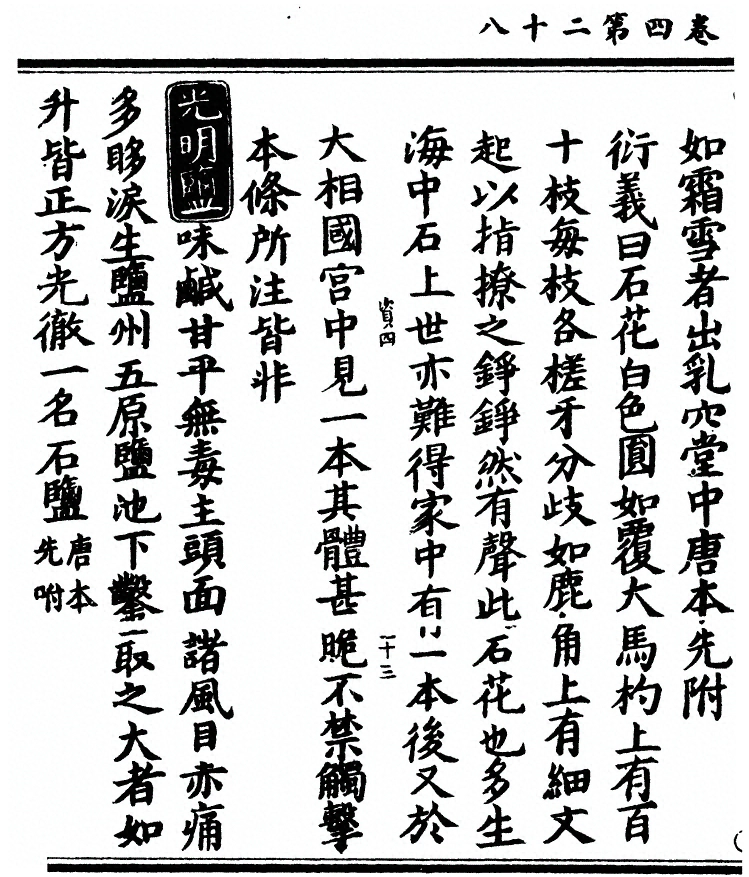 卷四第二十八
如霜雪者出乳穴堂中唐本先附
衍義曰石花白色圓如覆大馬杓上有百
十枝每枝各槎牙分歧如鹿角上有細文
起以指撩之錚錚然有聲此石花也多生
海中石上世亦難得家中有一本後又於
大相國宮中見一本其體甚脆不禁觸擊
本條所注皆非
光明鹽味鹹甘平無毒主頭面諸風目赤痛
多眵淚生鹽州五原鹽池下鑿取之大者如
升皆正方光徹一名石鹽唐本先附
十三